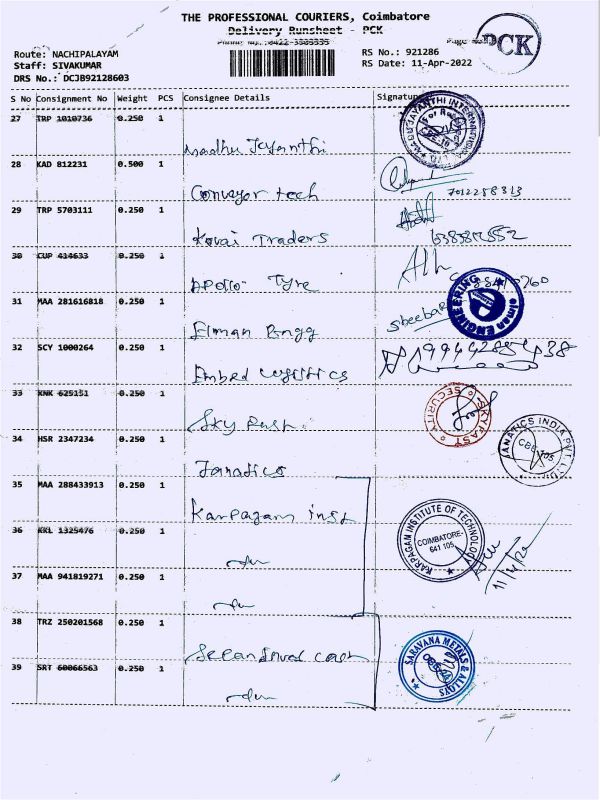 THE PROFESSIONAL COURIERS, Coimbatore
Delivery Runsheet - PCK
PCK
Route: NACHIPALAYAM
RS No.: 921286
Staff: SIVAKUMAR
RS Date: 11-Apr-2022
DRS No.: DCJB92128603
S No Consignment No Weight PCS Consignee Details Signature
27 TRP 1010736 0.250 1
Madhu Jayanthi
28 KAD 812231 0.500 1
Conveyor tech
7012258313
29 TRP 5703111 0.250 1
Kovai Traders
30 CUP 414633 0.250 1
Apollo Tyre
31 MAA 281616818 0.250 1
Elman Engg
elman ENGINEERING
32 SCY 1000264 0.250 1
Embed Logistics
33 KNK 625151 0.250 1
Sky Fast
SKYFAST SECURITY
34 HSR 2347234 0.250 1
Fanatics
FANATICS INDIA PVT LTD
35 MAA 288433913 0.250 1
Karpagam inst
36 KKL 1325476 0.250 1
KARPAGAM INSTITUTE OF TECHNOLOGY
COIMBATORE-
641 105
11/4/22
37 MAA 941819271 0.250 1
38 TRZ 250201568 0.250 1
SARAVANA METALS & ALLOYS
39 SRT 60066563 0.250 1